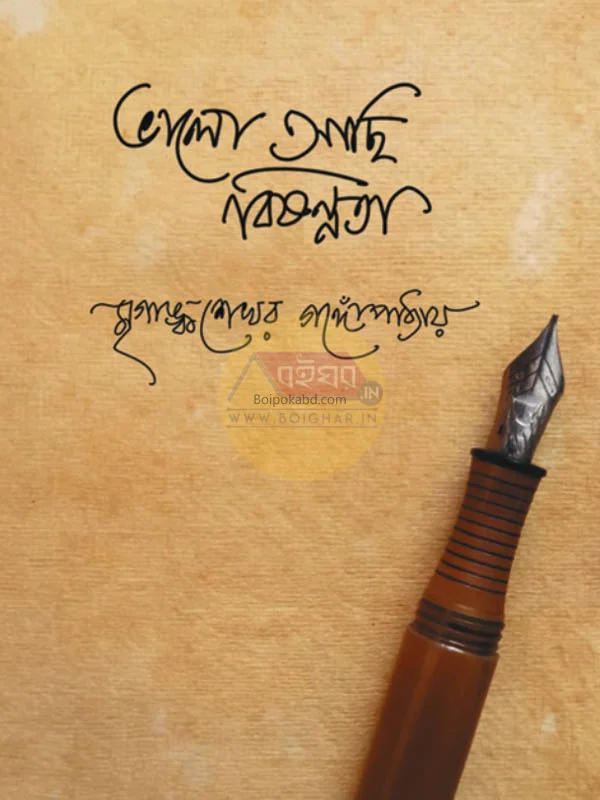 ভালো আছি
বিষণ্ণতা
মৃগাঙ্কশেখর গঙ্গোপাধ্যায়
বইঘর
.IN
Boipokabd.com
WWW.BOIGHAR.IN